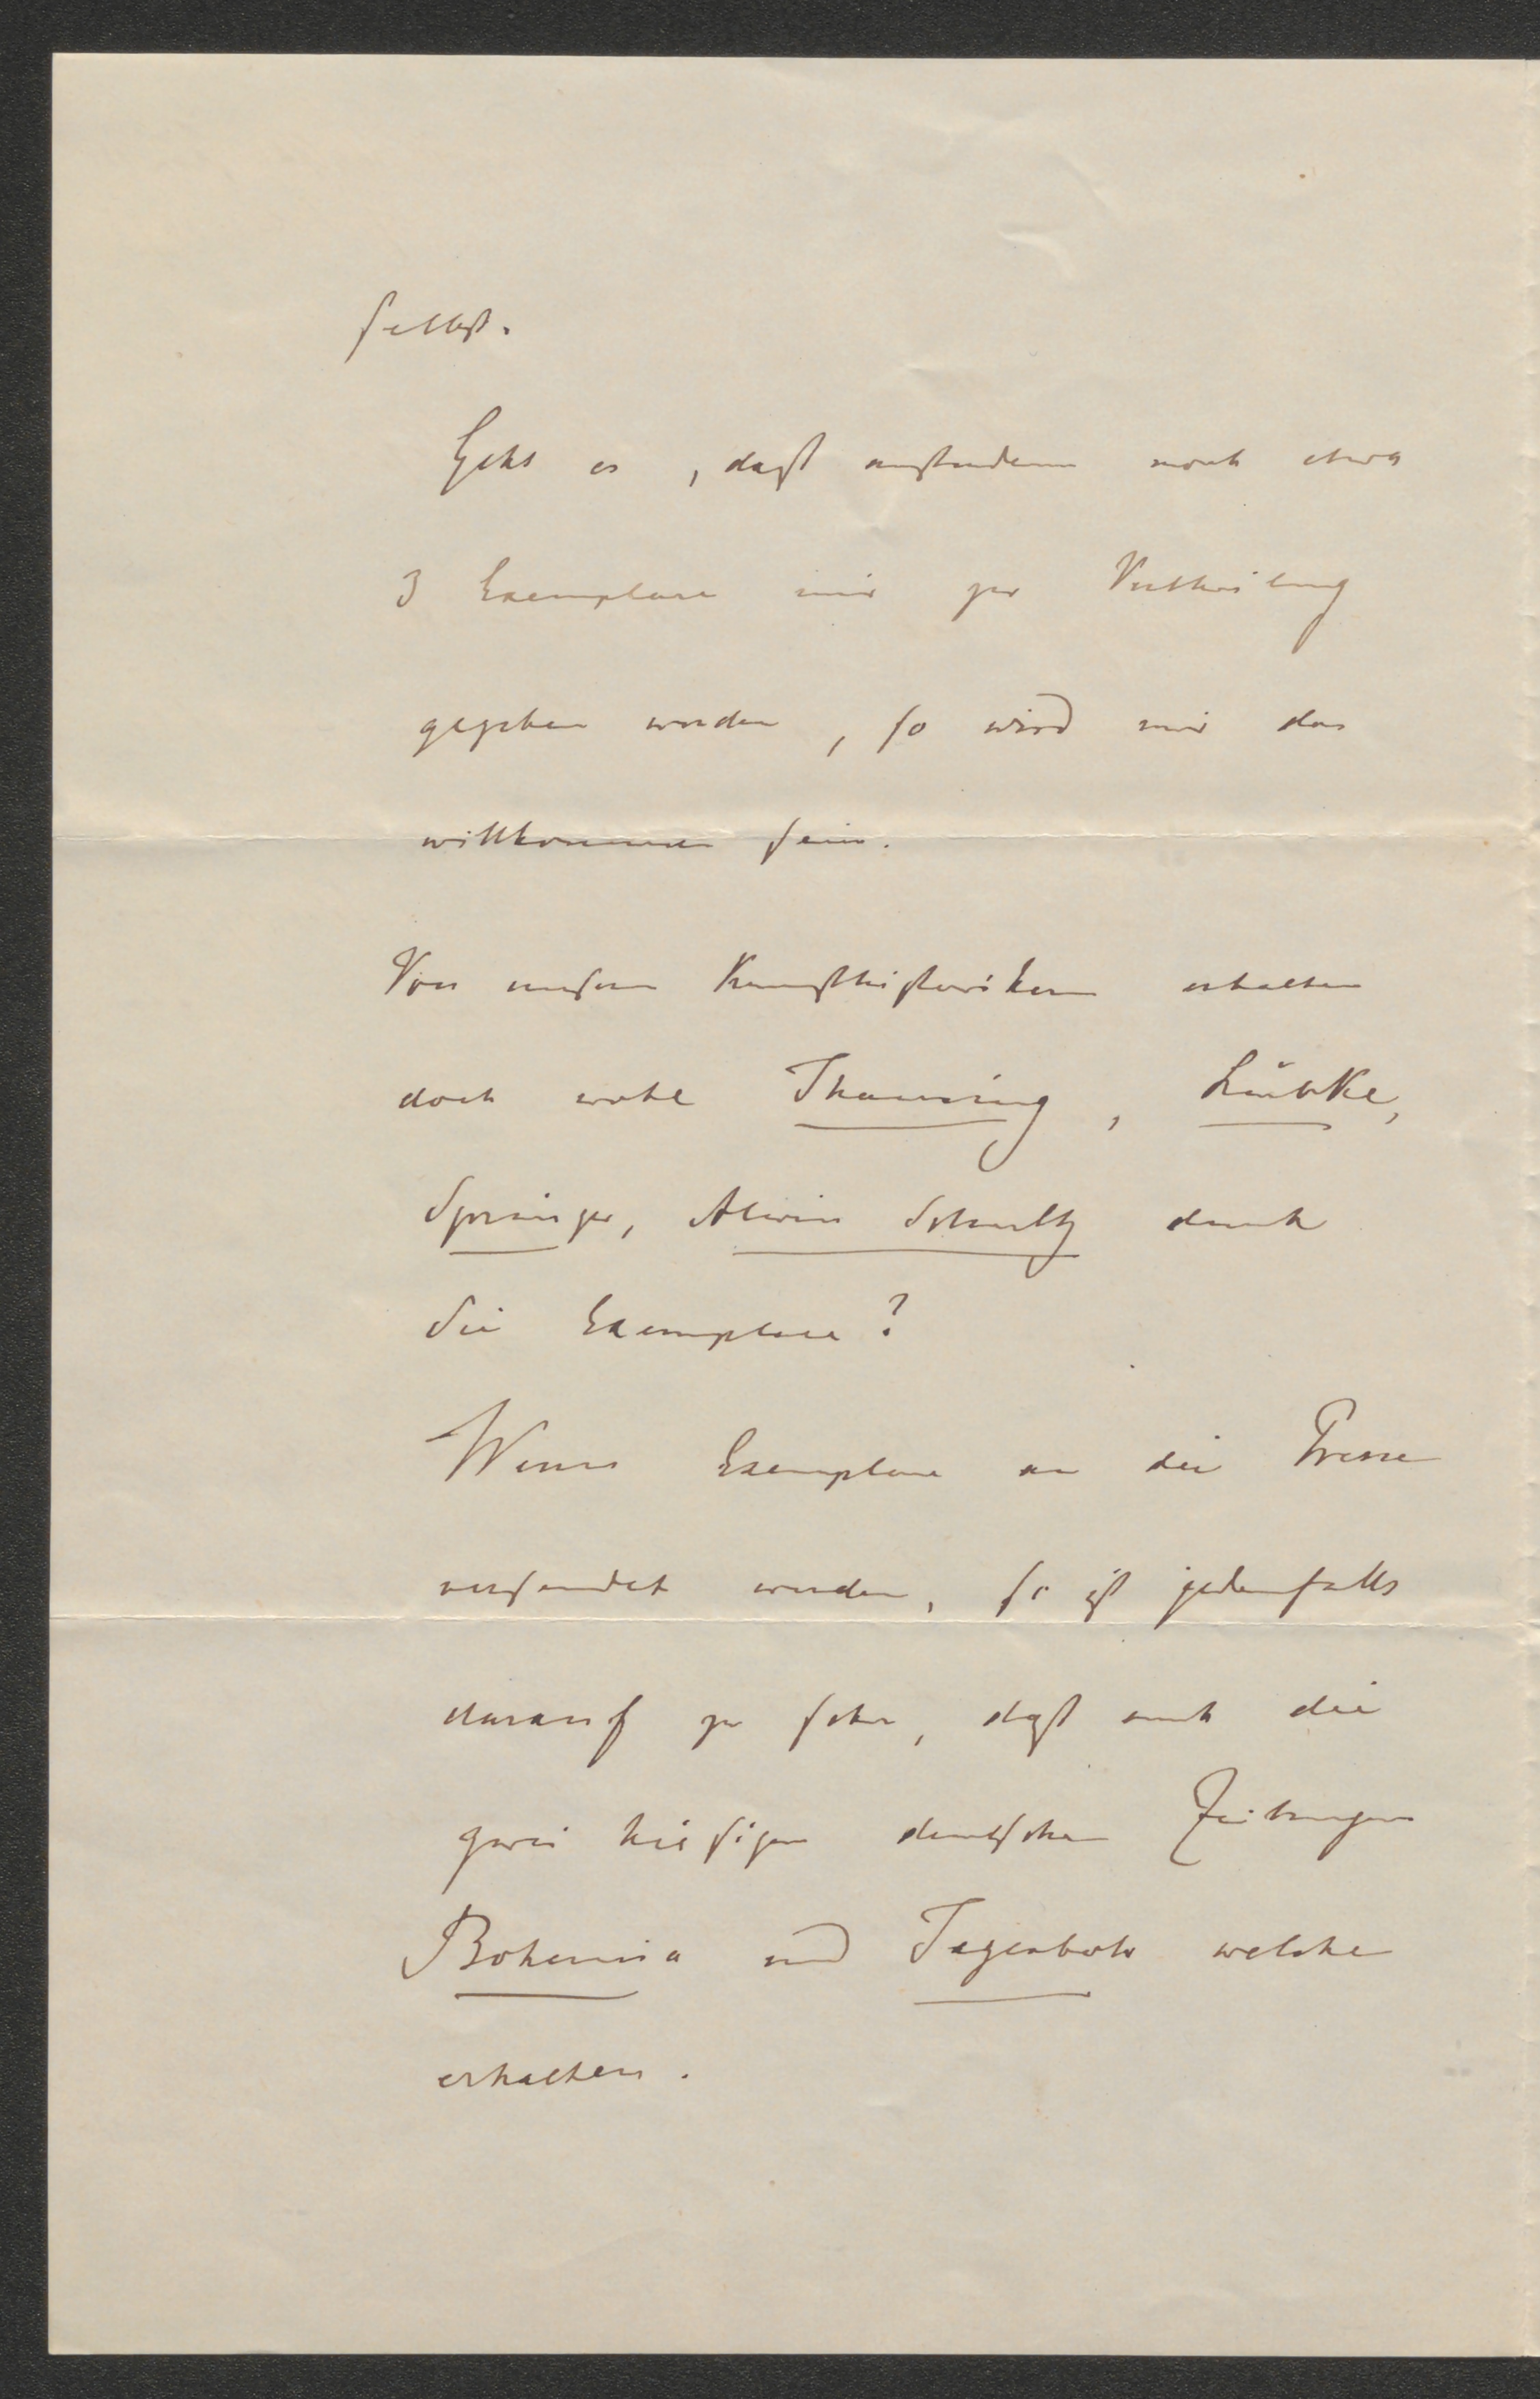 selbst.
Geht es, daß außerdem noch etwa
3 Exemplare mir zur Vertheilung
gegeben werden, so wird mir das
willkommen sein.
Von unsern Kunsthistorikern erhalten
doch wohl Thausing, Lübke,
Springer, Alwin Schultz durch
Sie Exemplare?
Wenn Exemplare an die Presse
versendet werden, so ist jedenfalls
darauf zu sehen, daß auch die
zwei hiesigen deutschen Zeitungen
Bohemia und Tagesbote welche
erhalten.